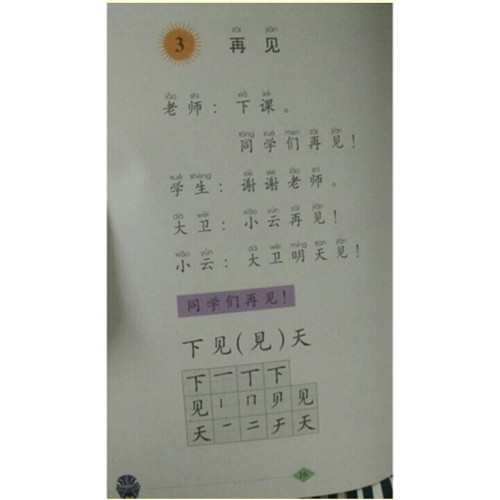 zài jiàn
3 再见
lǎo shī xià kè
老师：下课。
tóng xué men zài jiàn
同学们再见！
xué shēng xiè xie lǎo shī
学生：谢谢老师。
dà wèi xiǎo yún zài jiàn
大卫：小云再见！
xiǎo yún dà wèi míng tiān jiàn
小云：大卫明天见！
同学们再见！
下见(見)天
下 一 丅 下
见 丨 冂 贝 见
天 一 二 于 天
16